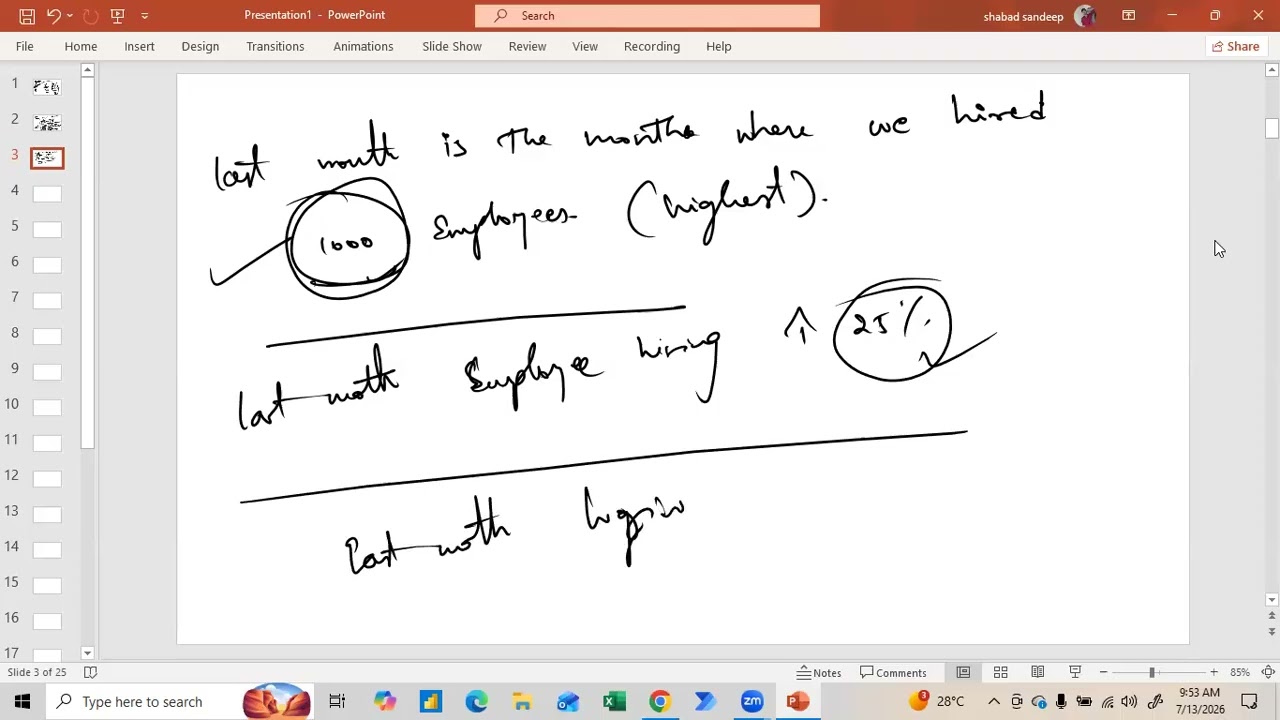 Presentation1 - PowerPoint
Search
shabad sandeep
File Home Insert Design Transitions Animations Slide Show Review View Recording Help
Share
1
2
3
4
5
6
7
8
9
10
11
12
13
14
15
16
17
last month is the months where we hired
1000 Employees (highest).
last moth Employee hiring ↑ 25%
last moth
Slide 3 of 25
Notes
Comments
85%
Type here to search
zm
3
28°C
9:53 AM
7/13/2026